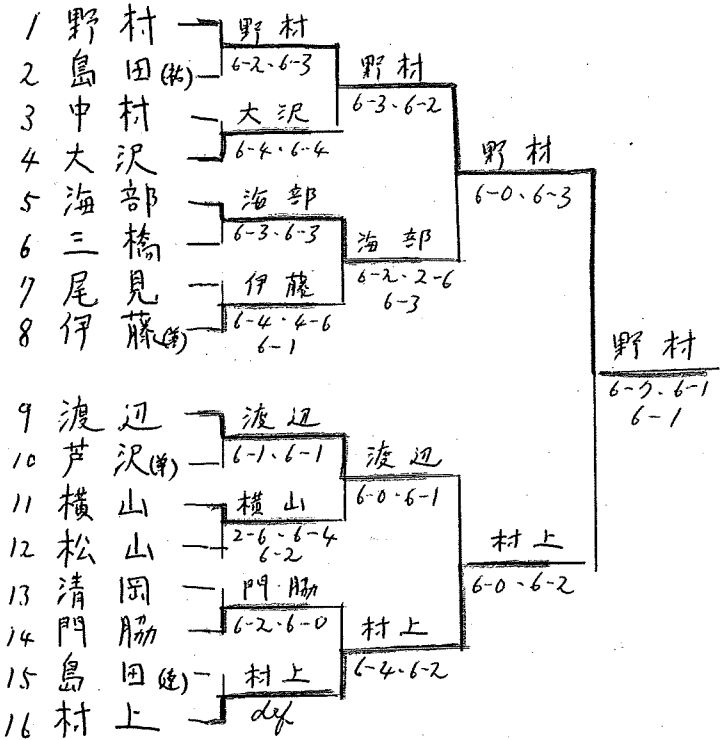 1 野村
2 島田(祐)
3 中村
4 大沢
5 海部
6 三橋
7 尾見
8 伊藤
9 渡辺
10 芦沢
11 横山
12 松山
13 清岡
14 門脇
15 島田(達)
16 村上
野村
6-2、6-3
大沢
6-4、6-4
海部
6-3、6-3
伊藤
6-4、4-6
6-1
渡辺
6-1、6-1
横山
2-6、6-4
6-2
門脇
6-2、6-0
村上
def
野村
6-3、6-2
海部
6-2、2-6
6-3
渡辺
6-0、6-1
村上
6-4、6-2
野村
6-0、6-3
村上
6-0、6-2
野村
6-7、6-1
6-1